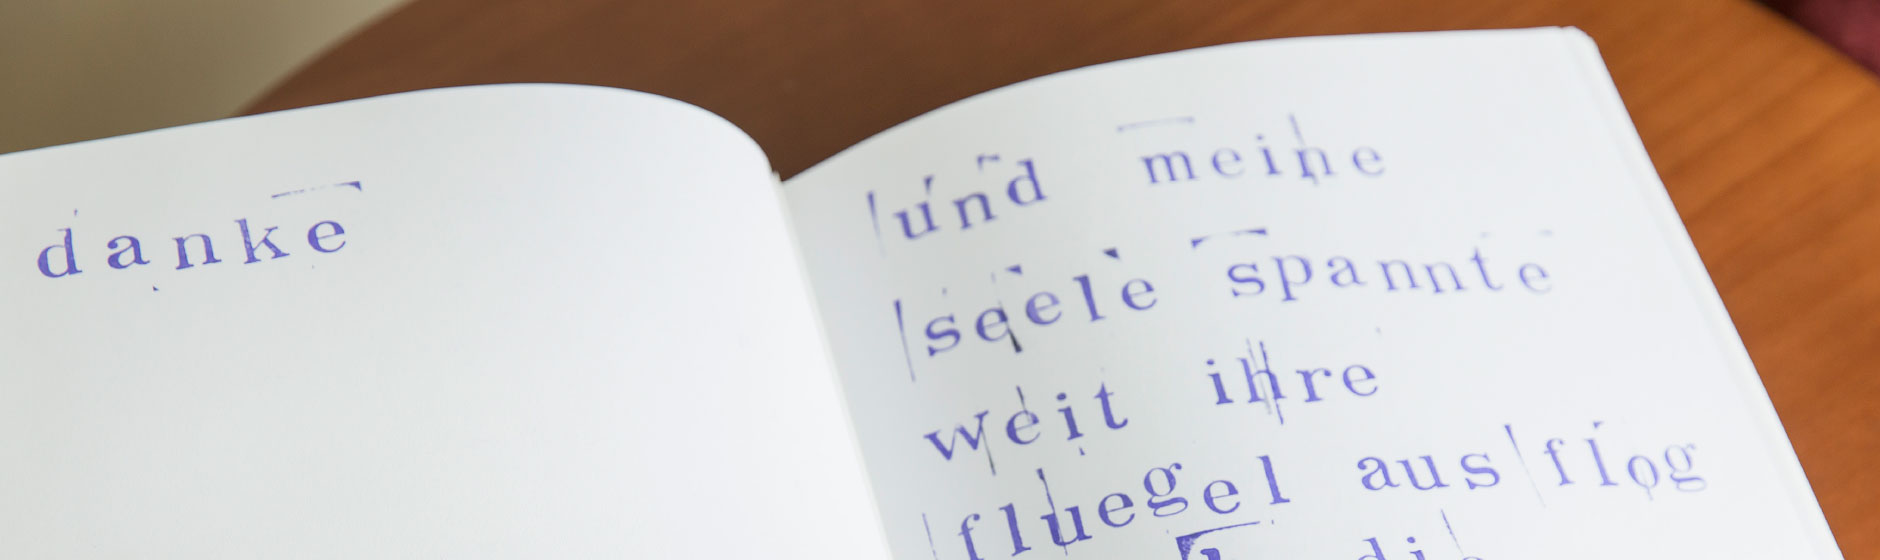 danke
und meine
seele spannte
weit ihre
fluegel aus flog